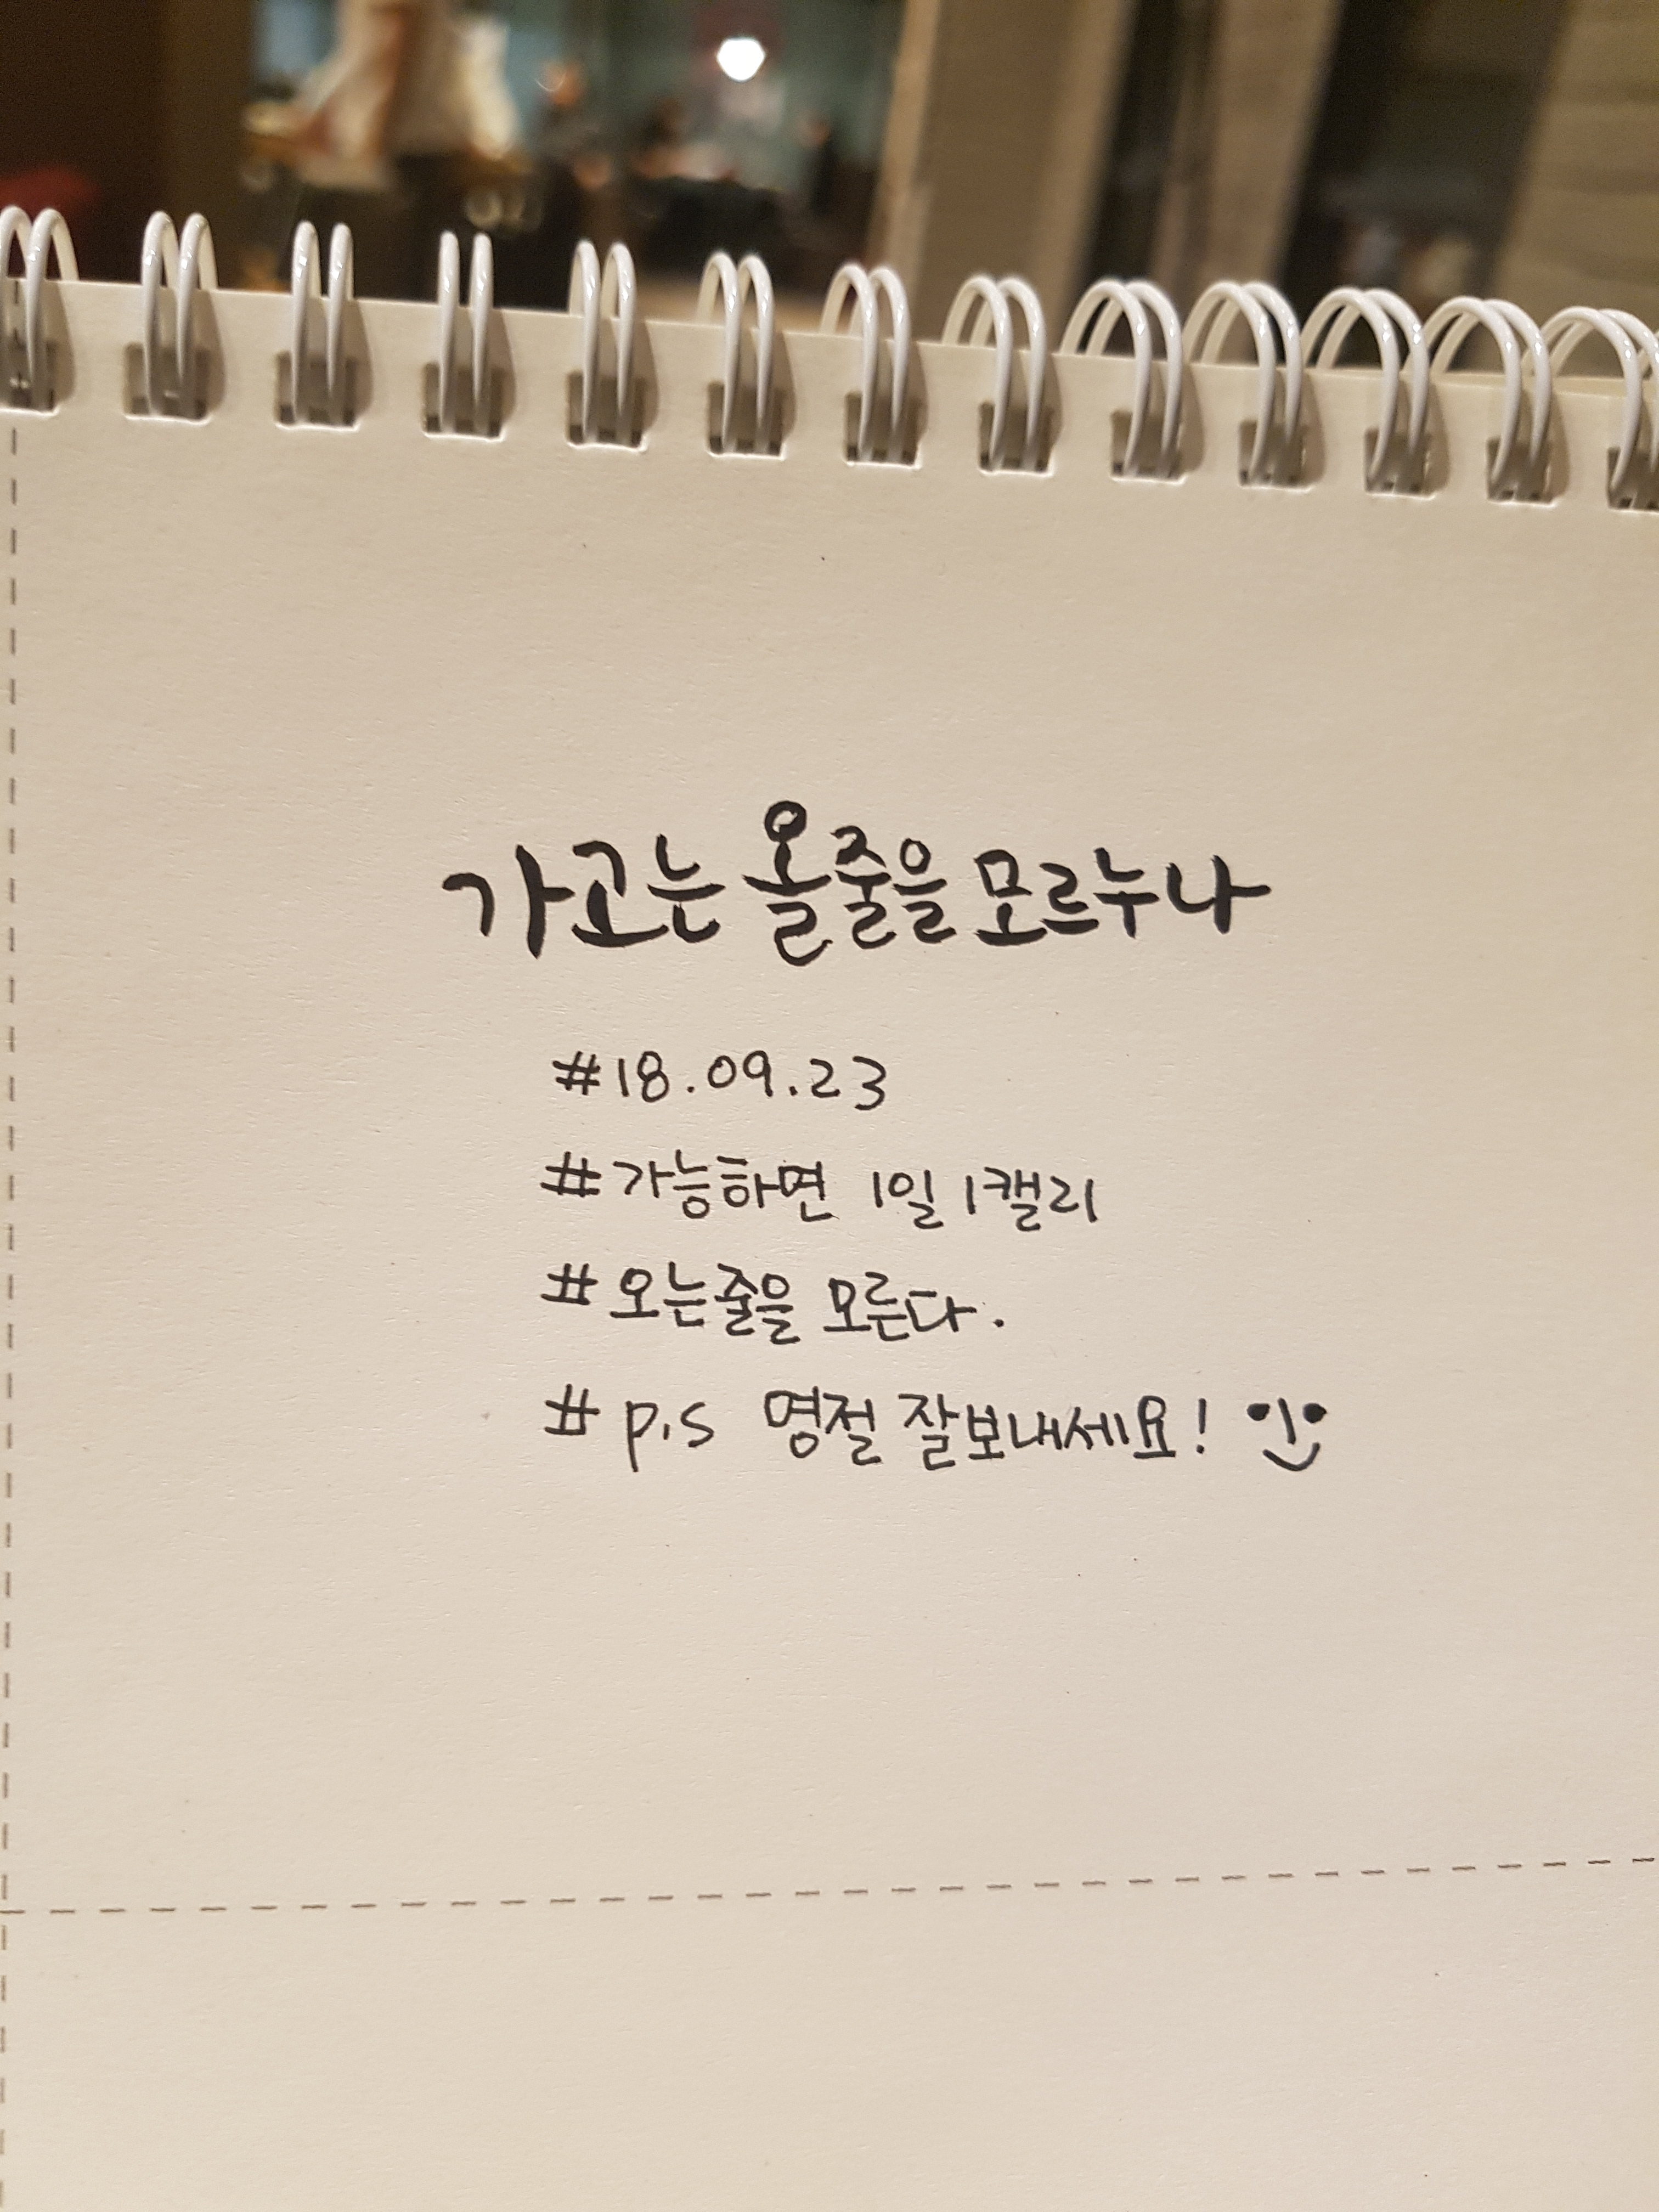 가고는 올줄을 모르누나
#18.09.23
#가능하면 1일 1캘리
#오는줄을 모른다.
#p.s 명절 잘보내세요!